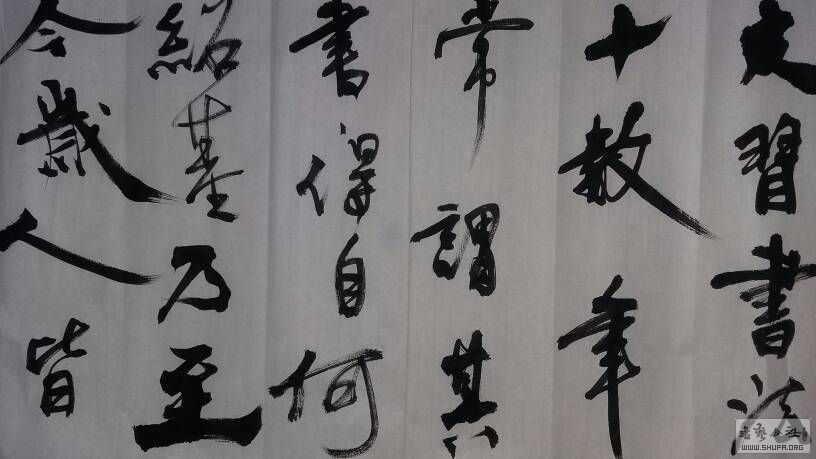 習書法
十數年
常謂其
書得自何
紹基乃至
今歲人皆
WWW.SHUFA.ORG